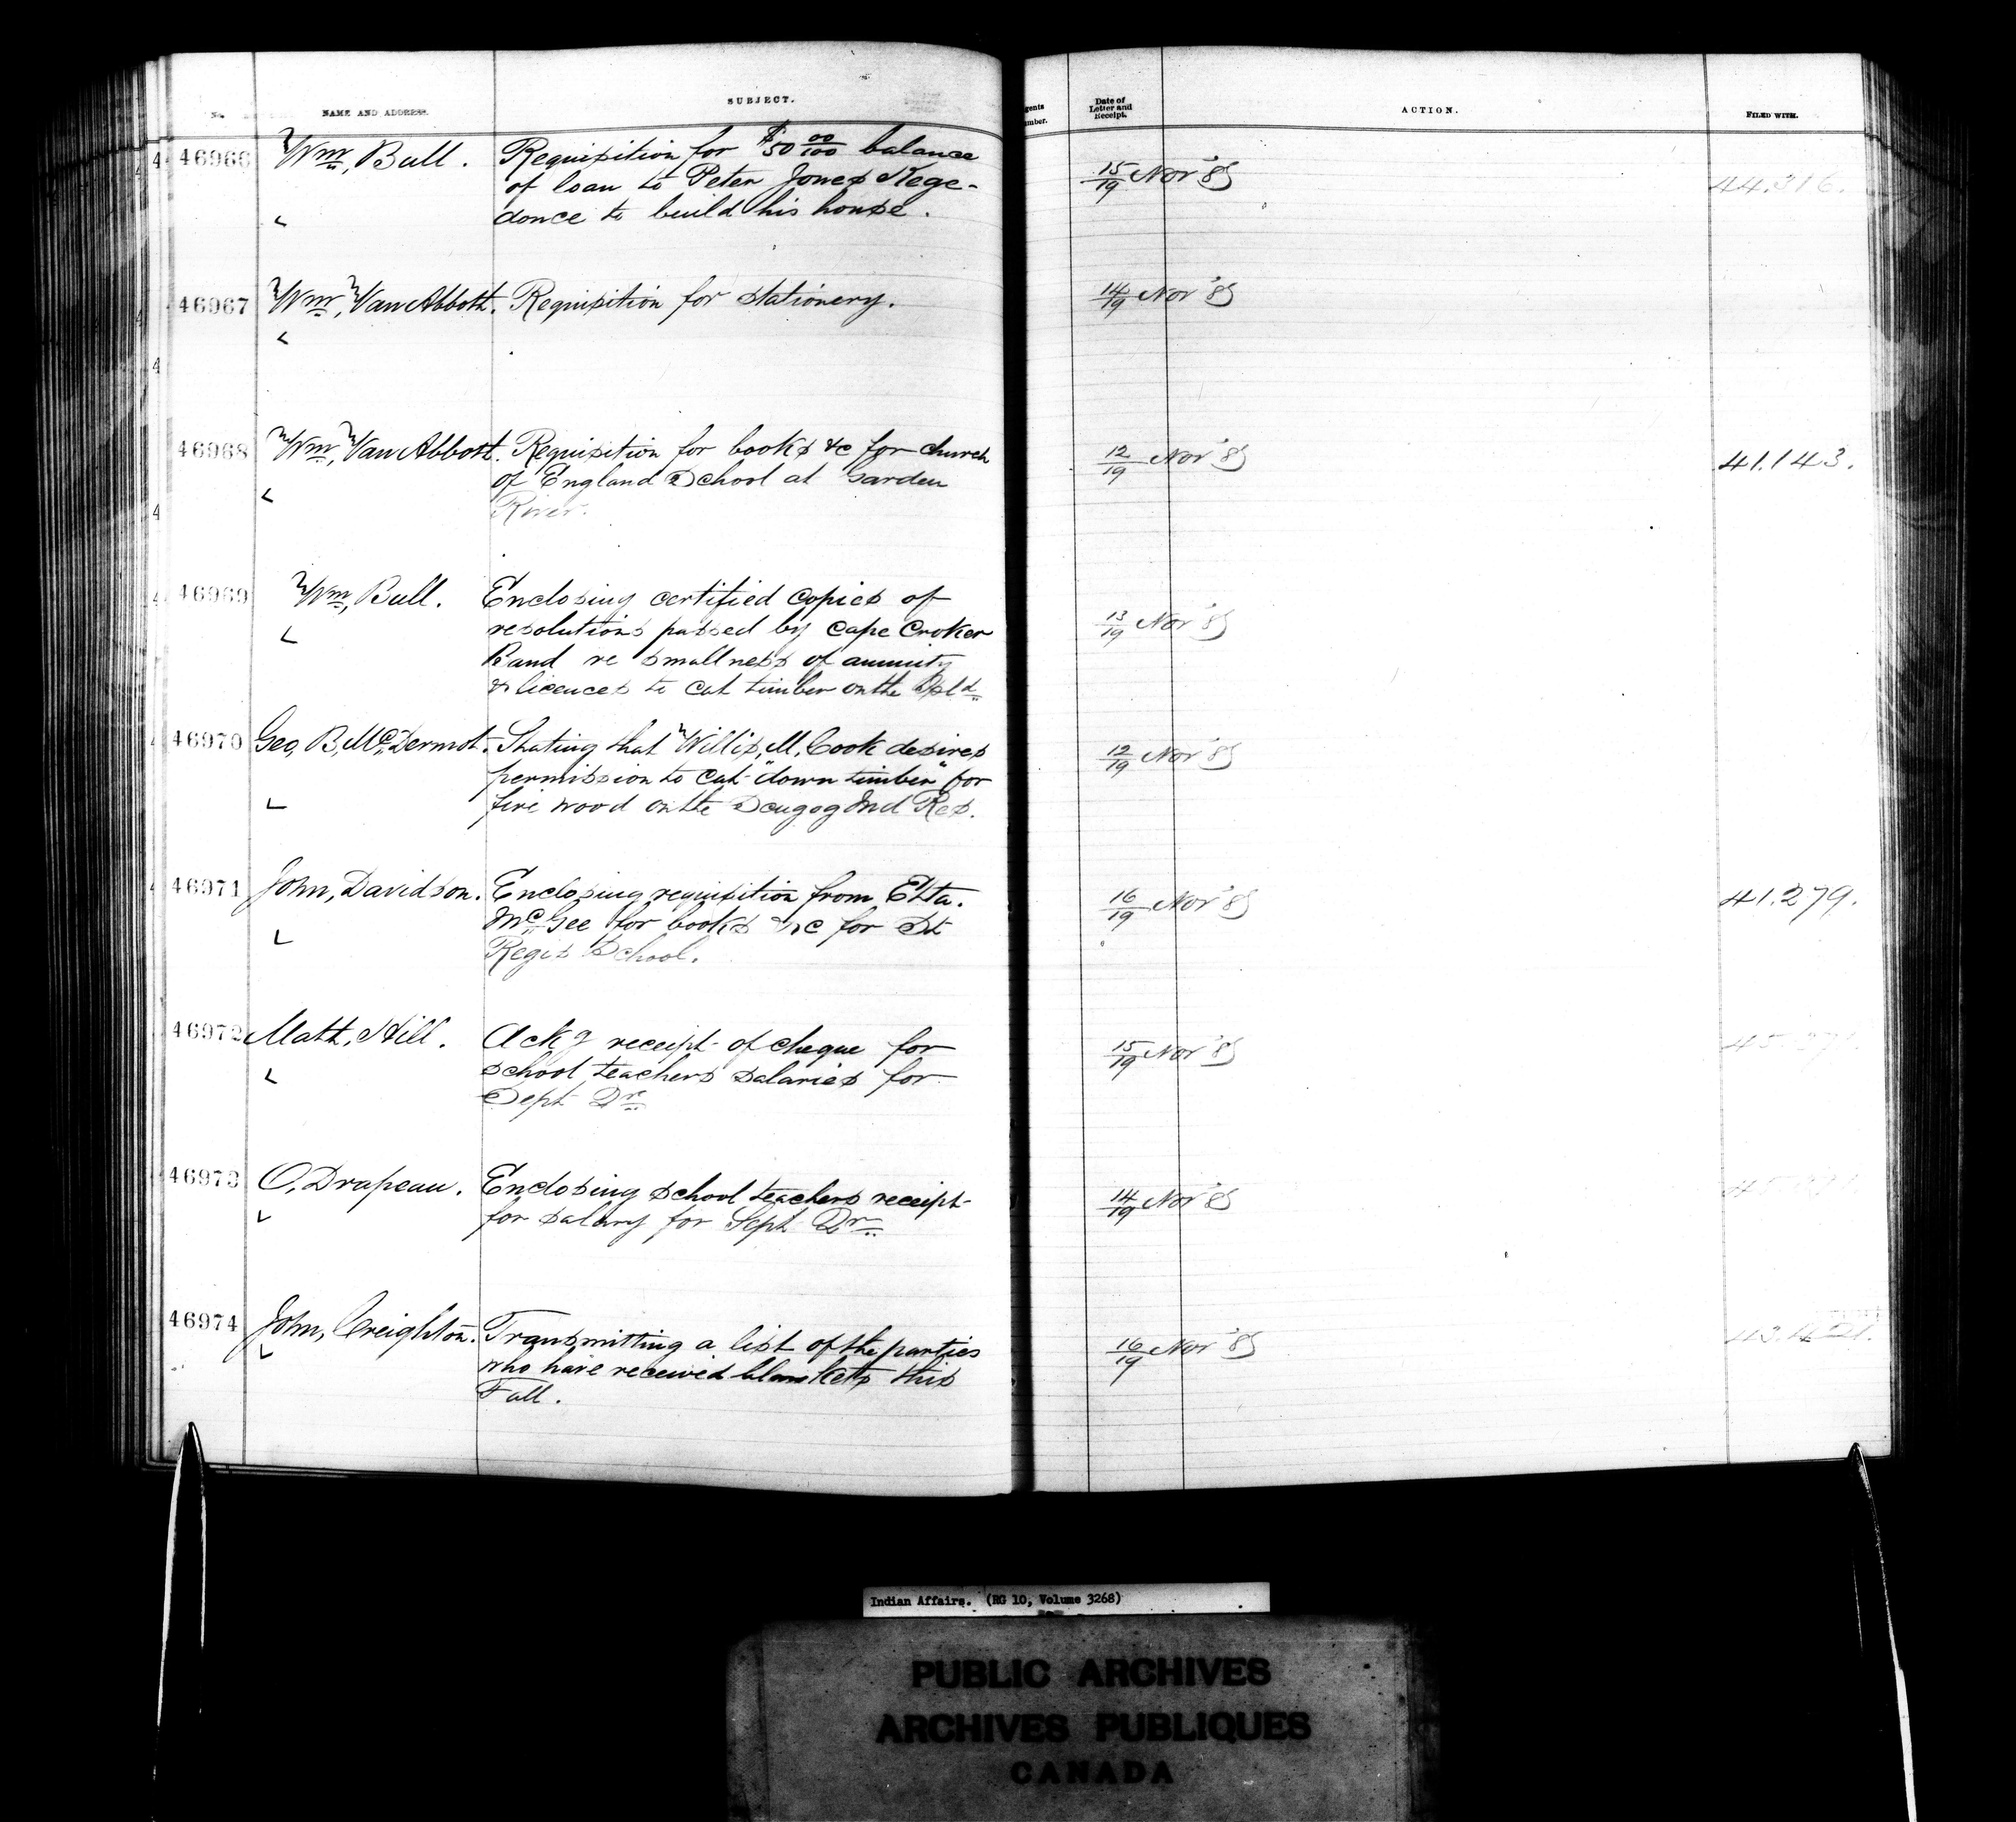 No. NAME AND ADDRESS. SUBJECT. Date of Letter and Receipt. ACTION. FILED WITH.
46966 Wm, Bull. Requisition for $50 00/100 balance 15/19 Nor '85 44.316.
of loan to Peter Jones Kege-
donce to build his house.
46967 Wm, Van Abbott. Requisition for stationery. 14/19 Nor '85
46968 Wm, Van Abbott. Requisition for books &c for church 12/19 Nor '85 41.143.
of England School at Garden
River.
46969 Wm, Bull. Enclosing certified copies of 13/19 Nor '85
resolutions passed by Cape Croker
Band re smallness of annuity
& licences to cut timber on the
46970 Geo, B, McDermot. Stating that Willis, M, Cook desires 12/19 Nor '85
permission to cut "down timber" for
fire wood on the Scugog Ind Res.
46971 John, Davidson. Enclosing requisition from Etta. 16/19 Nor '85 41.279.
McGee for books &c for St
Regis School.
46972 Matt. Hill. Ackg receipt of cheque for 15/19 Nor '85
school teachers salaries for
Sept Qr
46973 O, Drapeau. Enclosing school teachers receipt 14/19 Nor '85
for salary for Sept Qr
46974 John, Creighton. Transmitting a list of the parties 16/19 Nor '85
who have received blankets this
Fall.
Indian Affairs. (RG 10, Volume 3268)
PUBLIC ARCHIVES
ARCHIVES PUBLIQUES
CANADA